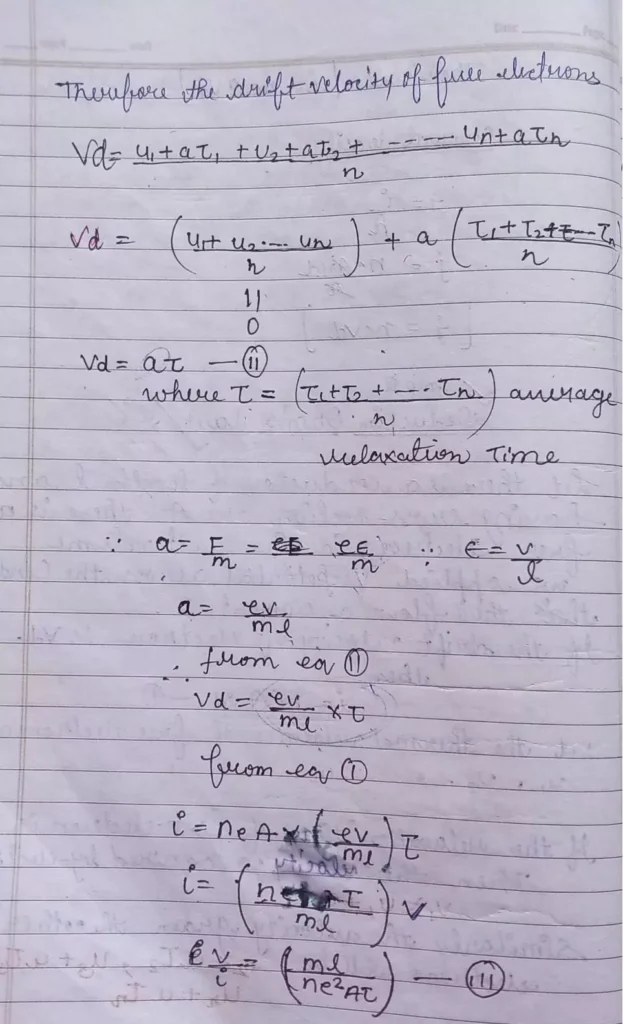 Therefore the drift velocity of free electrons
Vd = u₁ + aτ₁ + u₂ + aτ₂ + ---- un + aτn / n
Vd = (u₁ + u₂ ... un / n) + a (τ₁ + τ₂ + --- τn / n)
||
0
Vd = aτ — (ii)
where τ = (τ₁ + τ₂ + --- τn / n) average
relaxation Time
∵ a = F/m = eE/m ∵ E = V/l
a = ev/ml
∴ from eq (ii)
Vd = ev/ml × τ
from eq (i)
i = neA × (ev/ml) τ
i = (ne τ / ml) V
V/i = (ml / ne²Aτ) — (iii)